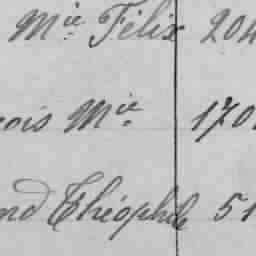 Mie Félix 204
ois Mie 170
nd Théophile 51